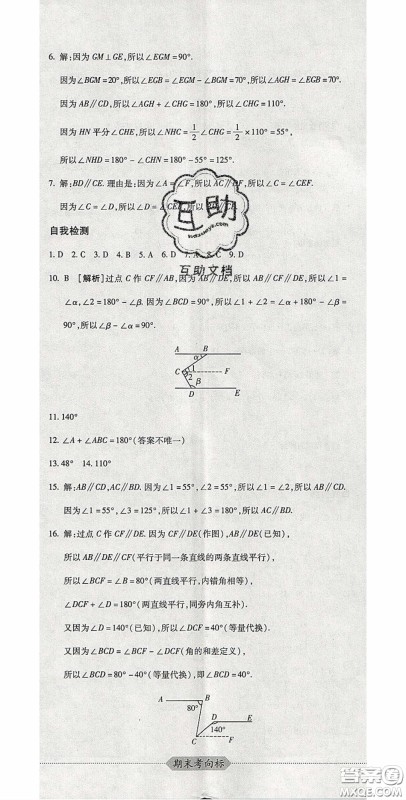 6. 解:因为 GM⊥GE,所以∠EGM=90°.
因为∠BGM=20°,所以∠EGB=∠EGM-∠BGM=70°,所以∠AGH=∠EGB=70°.
因为 AB∥CD,所以∠AGH+∠CHG=180°,所以∠CHG=110°.
因为 HN 平分∠CHE,所以∠NHC=1/2∠CHG=1/2×110°=55°,
所以∠NHD=180°-∠NHC=180°-55°=125°.
7. 解:BD∥CE. 理由是:因为∠A=∠F,所以AC∥DF,所以∠C=∠CEF.
因为∠C=∠D,所以∠D=∠CEF
自我检测
1. D 2. C 3. D 4. B 5. A 6. D 7. A 8. D 9. C
10. B [解析]过点 C 作 CF∥AB,因为 AB∥DE,所以 CF∥DE,所以∠1=
∠α,∠2=180°-∠β. 因为∠BCD=90°,所以∠1+∠2=∠α+180°-∠β=
90°,所以∠β-∠α=90°.
A B
α
C 1 F
2 β
D E
11. 140°
12. ∠A+∠ABC=180°(答案不唯一)
13. 48° 14. 110°
15. 解:AB∥CD,AC∥BD. 因为∠1=55°,∠2=55°,所以∠1=∠2,所以 AB∥CD.
因为∠1=55°,∠3=125°,所以∠1+∠3=180°,所以 AC∥BD.
16. 解:过点 C 作 CF∥DE. 因为 CF∥DE(作图),AB∥DE(已知),
所以 AB∥DE∥CF(平行于同一条直线的两条直线平行),
所以∠BCF=∠B=80°(两直线平行,内错角相等),
∠DCF+∠D=180°(两直线平行,同旁内角互补).
又因为∠D=140°(已知),所以∠DCF=40°(等量代换).
又因为∠BCD=∠BCF-∠DCF(角的和差定义),
所以∠BCD=80°-40°(等量代换),即∠BCD=40°.
A B
80°
D E
140°
C F
期末考向标
互助
互助文档
答案圈
MXQE.COM